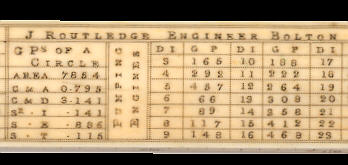 J ROUTLEDGE ENGINEER BOLTON
GPS OF A
CIRCLE
AREA 7854
C & A 0.795
C & D 3.141
I .141
S E .886
S T .115
DI G P DI G P DI
3 165 10 188 17
4 292 11 222 18
5 457 12 264 19
6 66 13 308 20
7 89 14 358 21
8 117 15 412 22
9 148 16 468 23